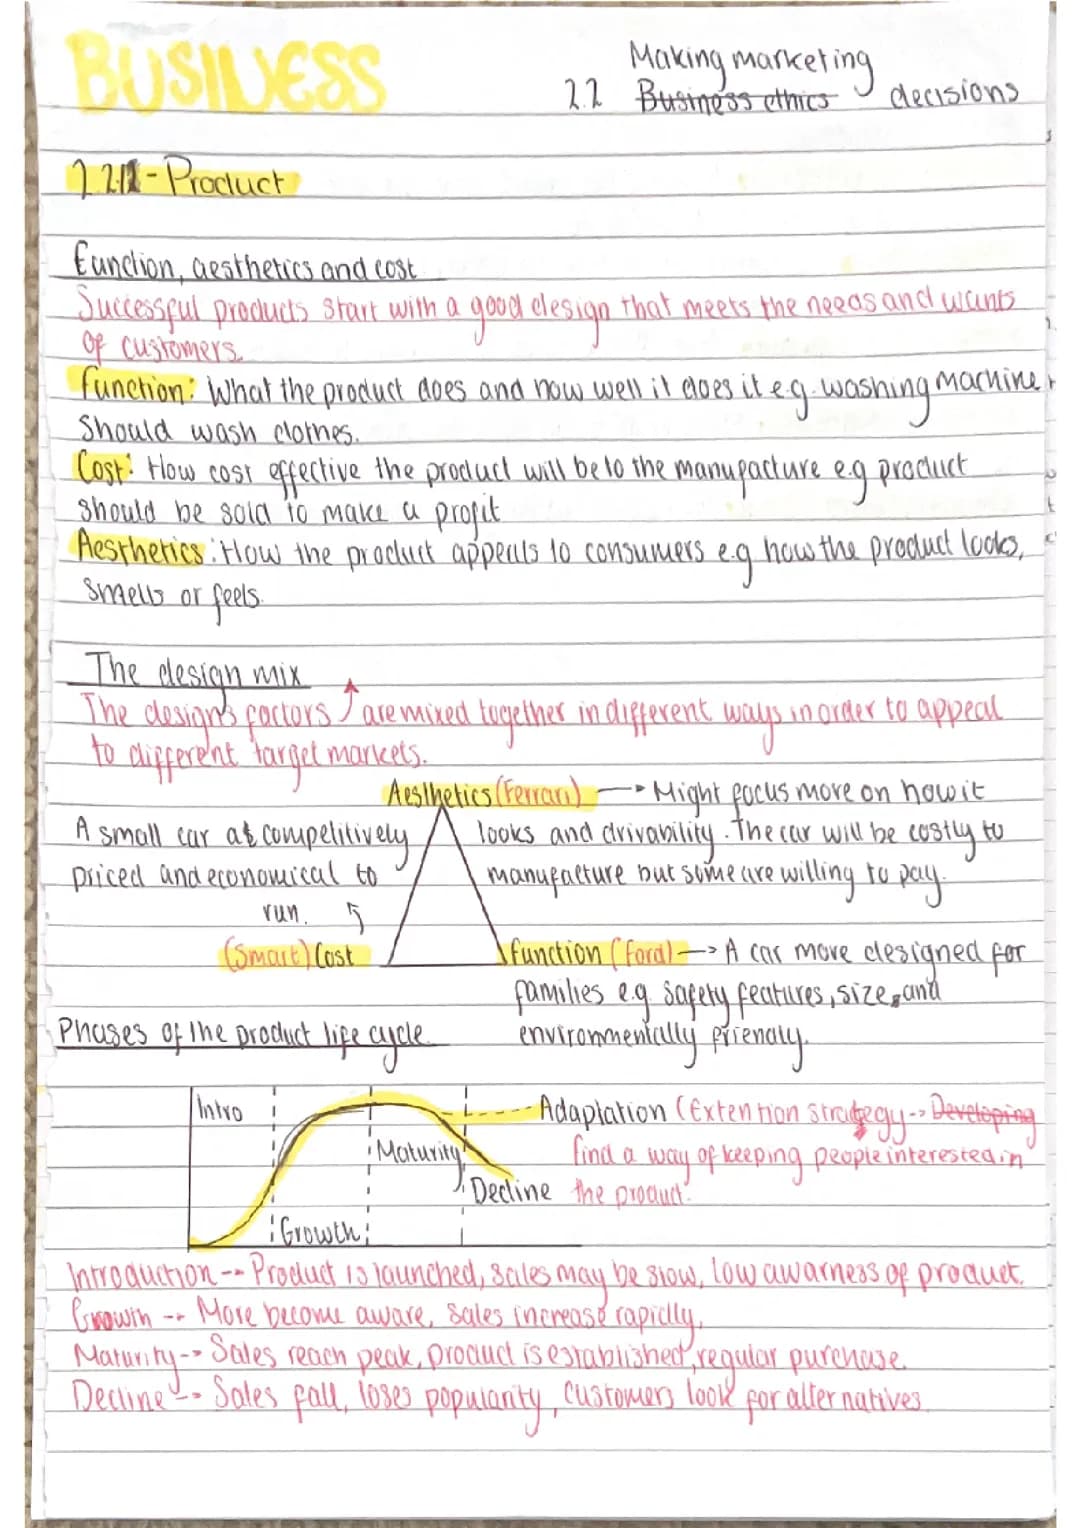 BUSINESS
Making marketing
2.2 Business ethics decisions
2.2.1 - Product
Function, aesthetics and cost
Successful products start with a good design that meets the needs and wants
of customers.
Function: What the product does and how well it does it e.g. washing machine
Should wash clothes.
Cost: How cost effective the product will be to the manufacture e.g product
should be sold to make a profit
Aesthetics: How the product appeals to consumers e.g how the product looks,
smells or feels.
The design mix
The designs factors ↑ are mixed together in different ways in order to appeal
to different target markets.
Aesthetics (Ferrari) → Might focus more on how it
looks and drivability. The car will be costly to
manufacture but some are willing to pay.
A small car at competitively
priced and economical to
run.
(Smart) Cost
Function (Ford) --> A car more designed for
families e.g. safety features, size, and
environmentally friendly.
Phases of the product life cycle
Intro
Growth
Maturity
Decline
Adaptation (Extention strategy --> Developing
find a way of keeping people interested in
the product.
Introduction --> Product is launched, sales may be slow, low awarness of product.
Growth --> More become aware, sales increase rapidly,
Maturity --> Sales reach peak, product is established, regular purchase.
Decline --> Sales fall, loses popularity, customers look for alternatives.